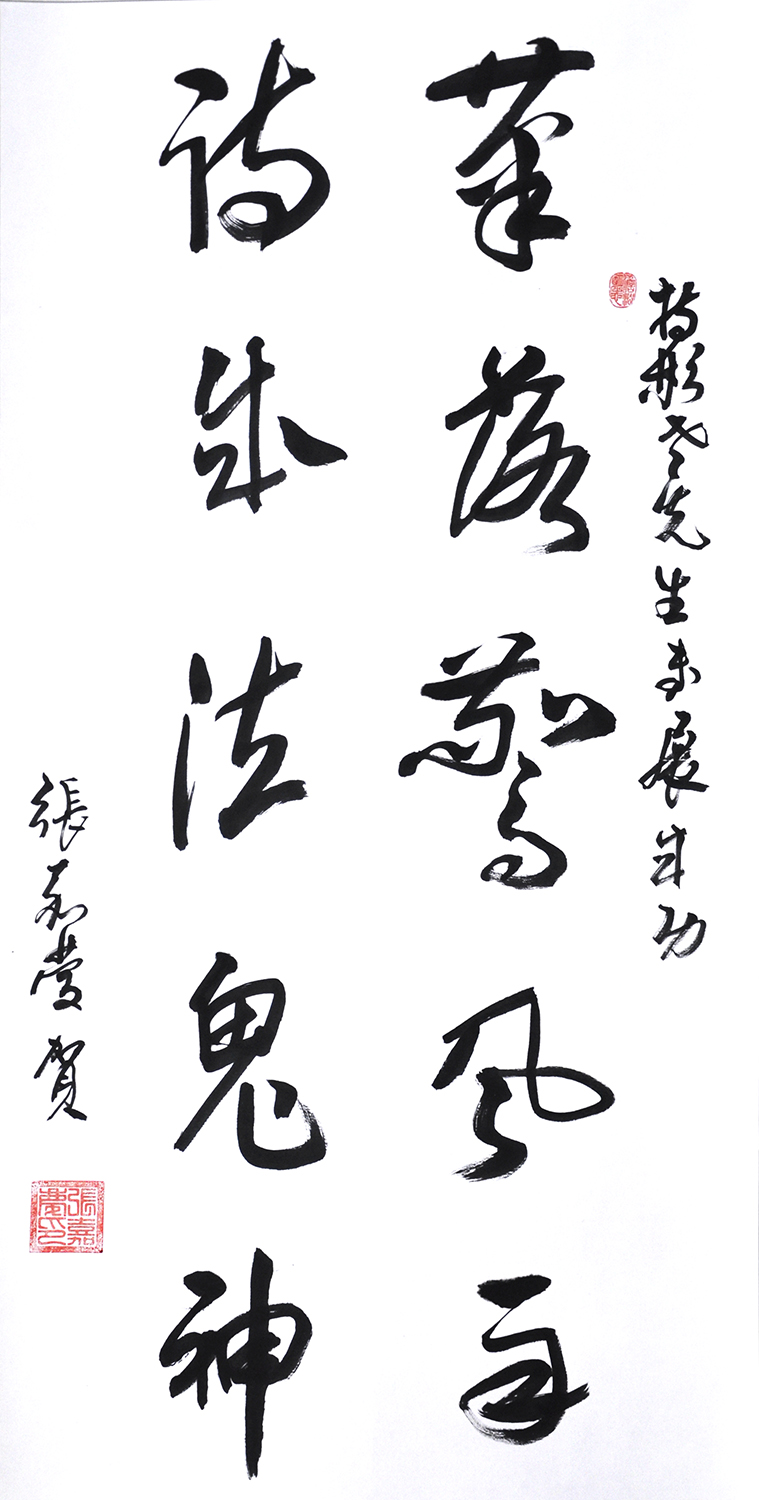 彤老先生書展成功
筆落驚風雨
詩成泣鬼神
張嘉慶賀
張嘉慶印